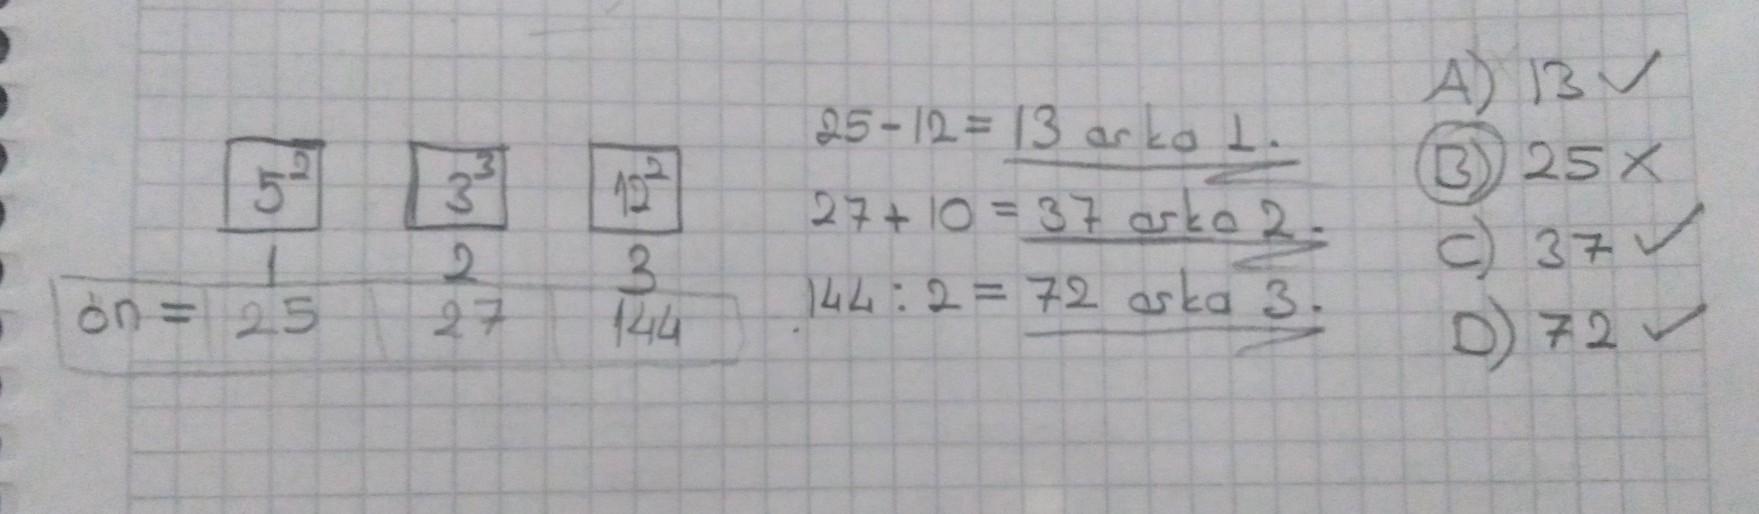 5² 3³ 12²
1 2 3
ön = 25 27 144
25-12= 13 arka 1.
27+10=37 arka 2.
144:2=72 arka 3.
A) 13 ✓
B) 25 ×
C) 37 ✓
D) 72 ✓